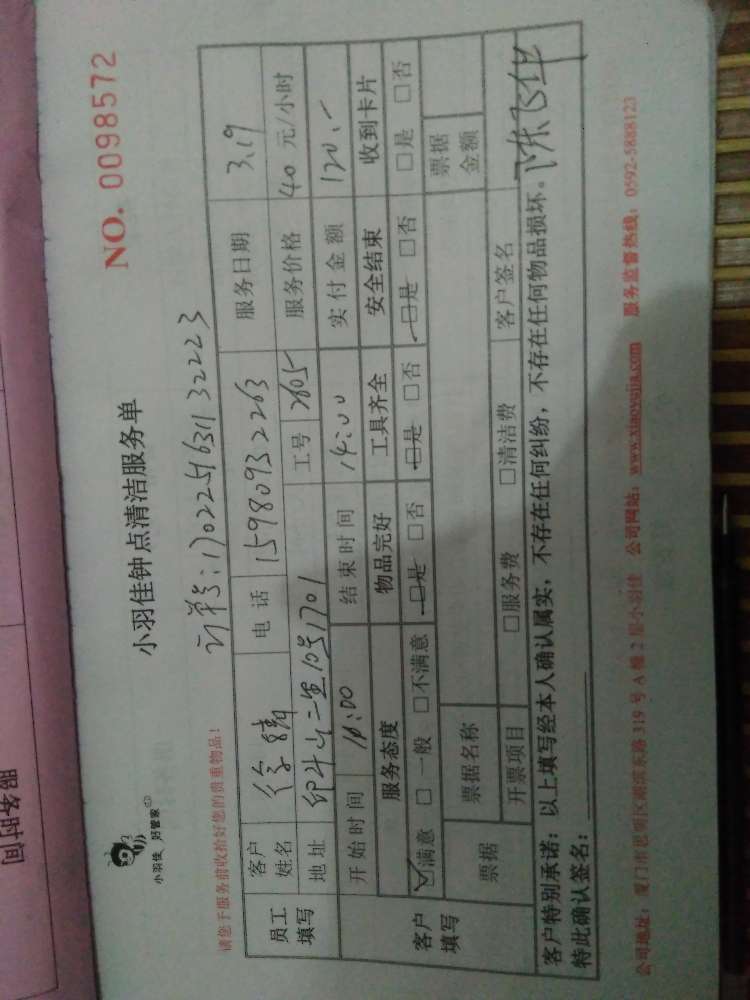 服务时间
小羽佳 好管家
小羽佳钟点清洁服务单
NO. 0098572
请您于服务前收拾好您的贵重物品!
订单号:1702251631132223
员工填写 客户姓名 电话 15980932263 服务日期 3.19
地址 工号 2805 服务价格 40 元/小时
开始时间 结束时间 14:00 实付金额 120.-
客户填写 服务态度 物品完好 工具齐全 安全结束 收到卡片
☑满意 □一般 □不满意 □是 □否 □是 □否 □是 □否 □是 □否
票据 票据名称 票据金额
开票项目 □服务费 □清洁费 客户签名
客户特别承诺:以上填写经本人确认属实,不存在任何纠纷,不存在任何物品损坏。
特此确认签名:
公司地址:厦门市思明区湖滨东路 319 号 A 幢 2 层小羽佳 公司网站:www.xiaoyujia.com 服务监督热线:0592-5888123